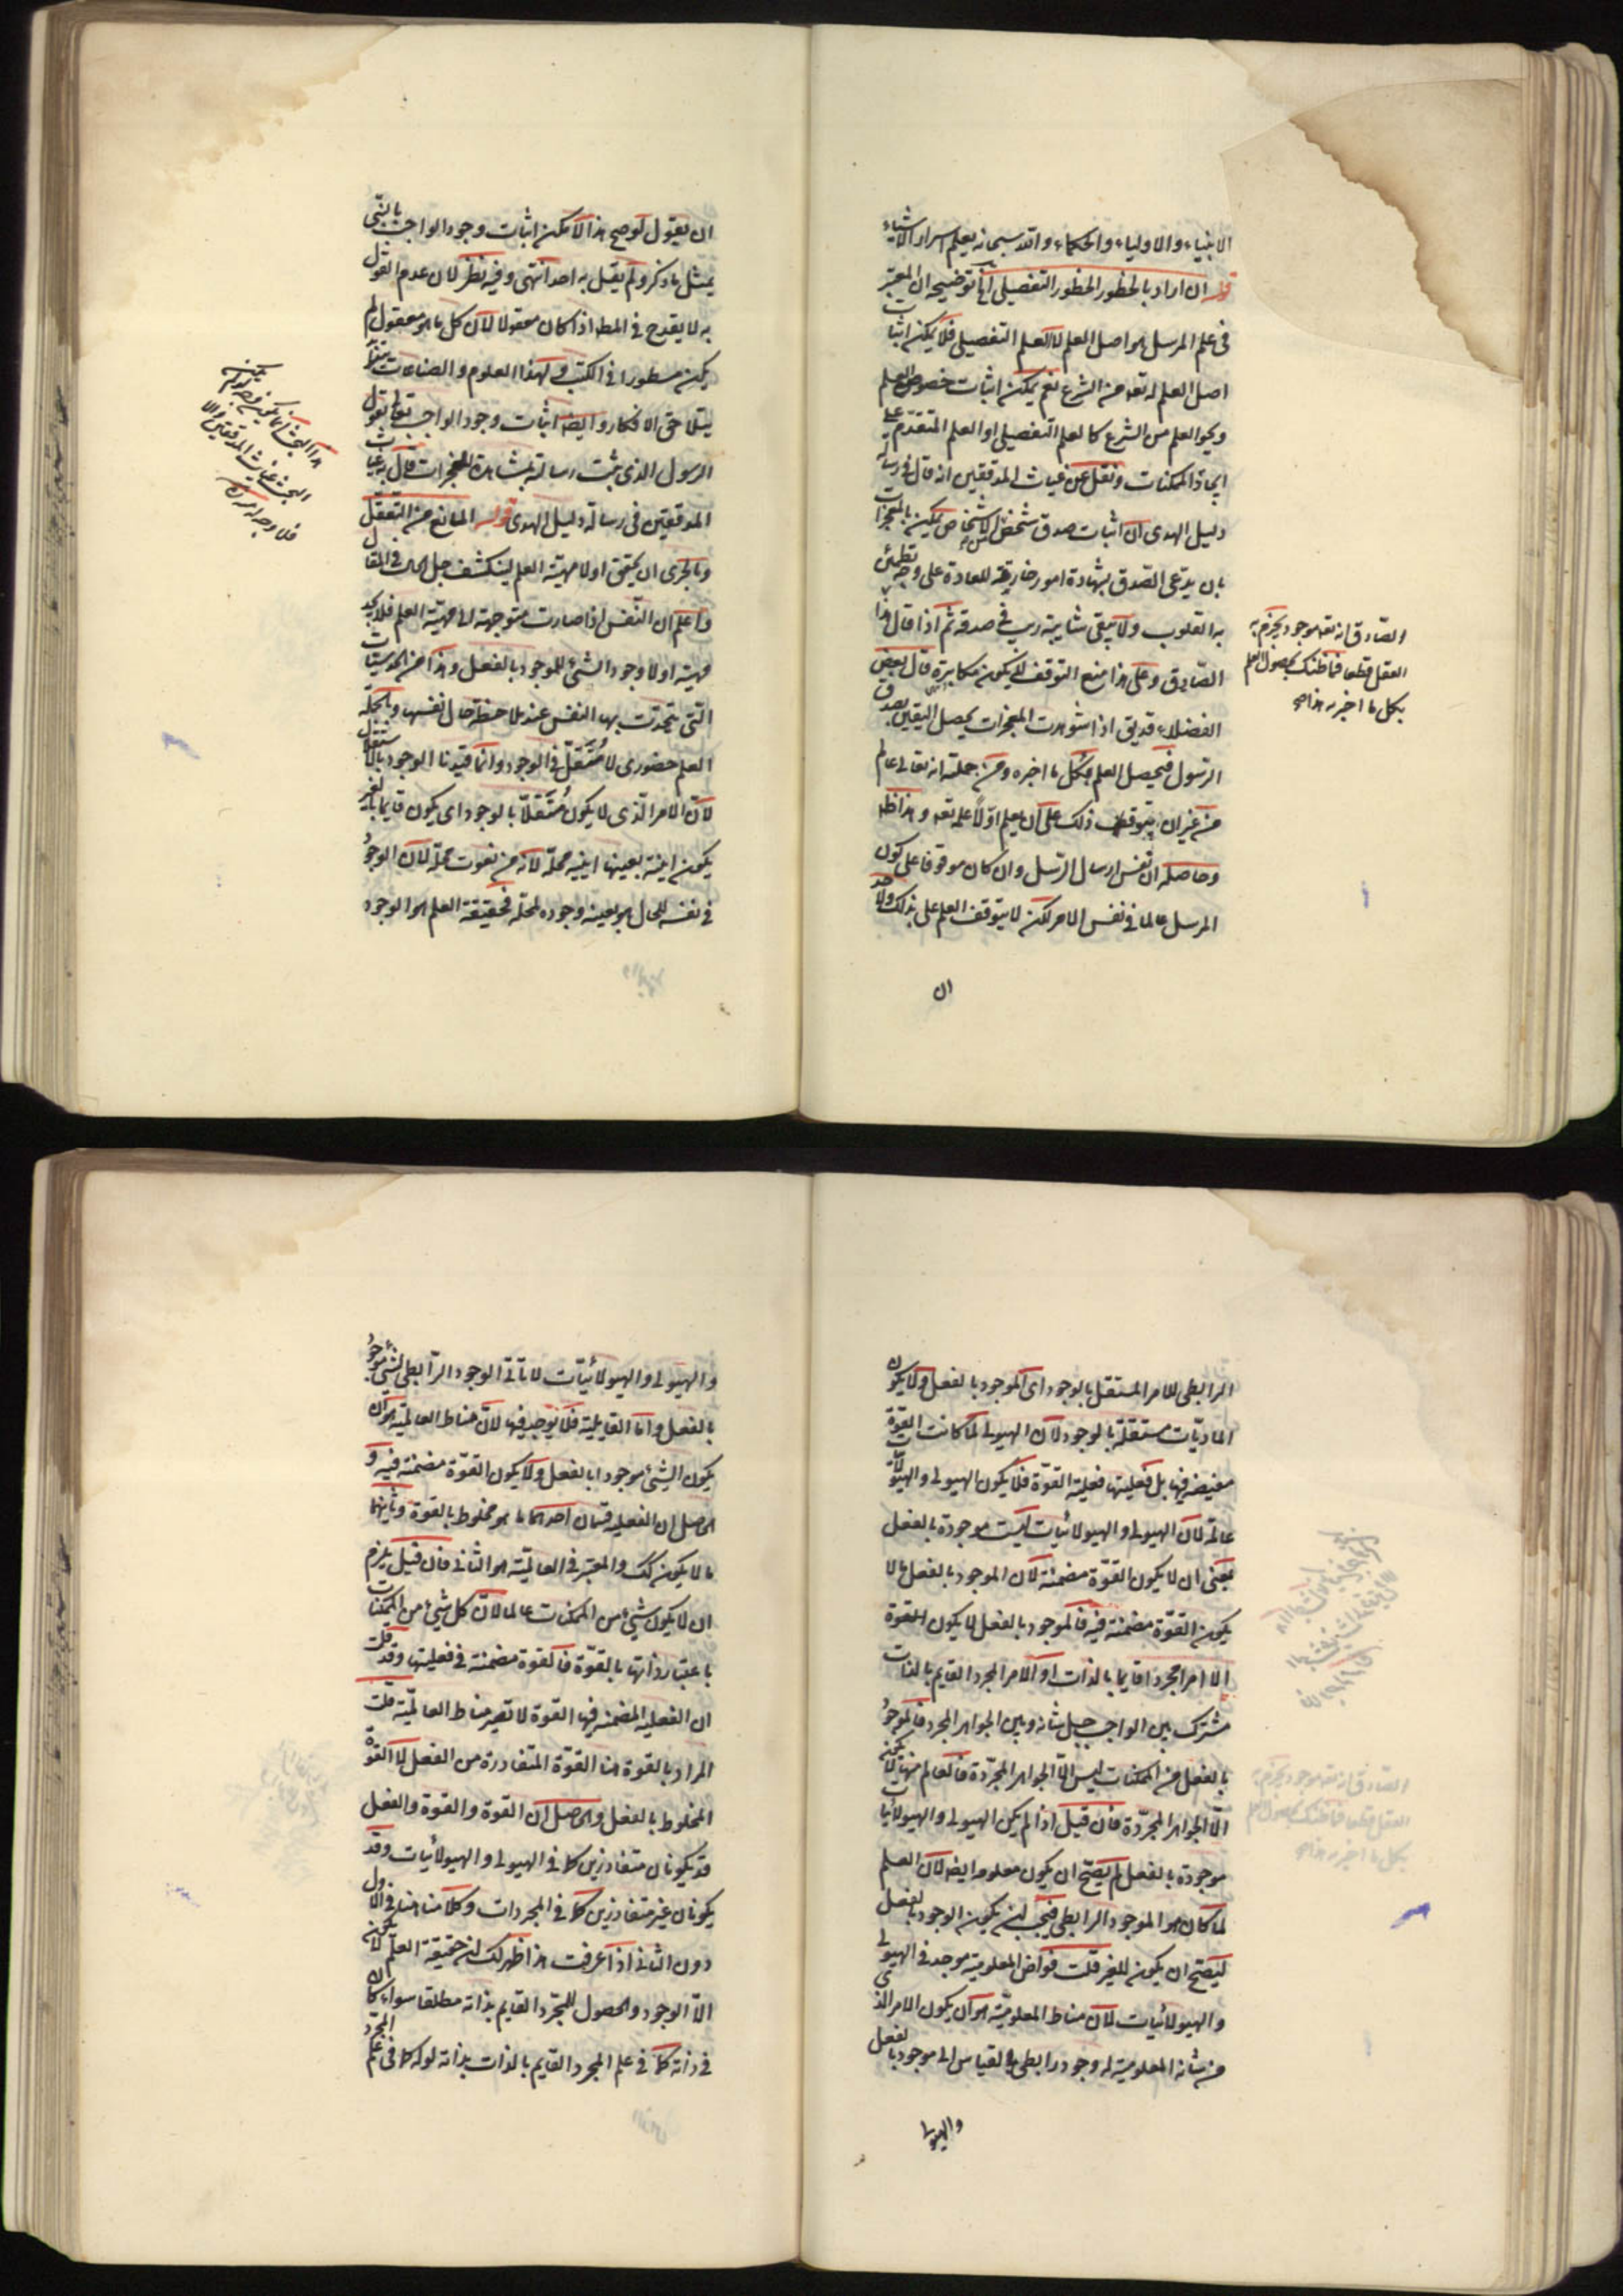 الانبياء والاولياء والحكماء والله سبحانه يعلم اسرار الاشياء
قوله ان اراد بالحظور الحظور التفصيلى الخ توضيحه ان المعتبر
فى علم المرسل هو اصل العلم لا العلم التفصيلى فلا يمكن اثبات
اصل العلم له تعه من الشرع نعم يمكن اثبات خصوص العلم
ونحو العلم من الشرع كالعلم التفصيلى او العلم المتقدم على
ايجاد الممكنات ونقل عن غياث المدققين انه قال فى رسالة
دليل الهدى ان اثبات صدق شخص من الاشخاص يمكن بالمعجزات
بان يدّعى الصّدق بشهادة امور خارقة للعادة على وجه تطمئن
به القلوب ولا يبقى شايبة ريب فى صدقه ثم اذا قال هذا
الصّادق وعلى هذا منع التوقف لا يكون مكابرة قال بعض
الفضلاء قد يق اذا شوهدت المعجزات يحصل اليقين بصدق
الرسول فيحصل العلم بكل ما اخبره ومن جملته انه تعالى عالم
من غير ان يتوقف ذلك على ان يعلم اوّلا علمه تعه وهذا ظه
وحاصله ان نفس ارسال الرسل وان كان موقوفا على كون
المرسل عالما فى نفس الامر لكن لا يتوقف العلم على ذلك ولاحد
ان
الصّادق انه تعه موجود يجزم به
العقل قطعا فما ظنك بحصول العلم
بكل ما اخبر به هذا صح
ان يقول لو صح هذا لامكن اثبات وجود الواجب بالنبى
بمثل ما ذكر ولم يقل به احد انتهى وفيه نظر لان عدم القول
به لا يقدح فى المط اذا كان معقولا لان كل ما هو معقول لم
يكن مسطورا فى الكتب ولهذا العلوم والصناعات
بتلاحق الافكار وايضه اثبات وجود الواجب تعالى بقول
الرسول الذى يثبت رسالته بمشاهدة المعجزات قال به غياث
المدققين فى رسالة دليل الهدى قوله المانع من التعقل
وبالحرى ان يحقق اولا مهيّة العلم لينكشف جل الحال فى المقال
واعلم ان النّفس اذا صارت متوجهة الى مهيّة العلم فلا يجد
مهيته اولا وجود الشئ للموجود بالفعل وهذا من الحدسيّات
التى تحدّث بها النفس عند ملاحظة حال نفسها وبالجملة
العلم حضورى لا مستقل فى الوجود وانّما قيدنا الوجود بالاستقلال
لانّ الامر الّذى لا يكون مستقلّا بالوجود اى يكون قايما بالغير
يكون انيته بعينها انيه محله لانه من نعوت محلّه لان الوجود
فى نفسه للحال هو بعينه وجوده لمحله فحقيقة العلم هو الوجود
الرابطى للامر المستقل بالوجود اى الموجود بالفعل ولا يكون
الماديّات مستقلة بالوجود لان الهيولى لما كانت القوة
مضمنة فيها بل فعليتها فعلية القوّة فلا يكون الهيولى والهيولانيات
عالمة لان الهيولى والهيولانيات ليست موجودة بالفعل
بمعنى ان لا يكون القوّة مضمنة لان الموجود بالفعل ما لا
يكون القوّة مضمنة فيه فالموجود بالفعل لا يكون القوة
الا امرا مجردا قايما بالذات او الامر المجرد القايم بالذات
مشترك بين الواجب جل شانه وبين الجواهر المجرد فالموجود
بالفعل من الممكنات ليس الّا الجواهر المجرّدة فالعالم منها لا يكون
الّا الجواهر المجرّدة فان قيل اذا لم يكن الهيولى والهيولانيات
موجودة بالفعل لم يصّح ان يكون معلوما ايضه لان العلم
لما كان هو الموجود الرابطى فيجب ان يكون الوجود بالفعل
ليصّح ان يكون للغير قلت فواض المعلومية موجد فى الهيولى
والهيولانيات لان مناط المعلوميّة هو ان يكون الامر الذى
من شانه المعلومية له وجود رابطى بالقياس الى موجود بالفعل
والهيولى
والهيولى والهيولانيّات لا ياتى الوجود الرّابطى لشئ موجود
بالفعل وامّا القابلية فلا يوجد فيها لانّ مناط العالميّة هو ان
يكون الشئ موجودا بالفعل ولا يكون القوّة مضمنة فيه و
الحاصل ان الفعلية قسمان احدهما ما هو مخلوط بالقوة وثانيهما
ما لا يكون كك والمعتبر فى العالميّة هو الثانى فان قيل يلزم
ان لا يكون شئ من الممكنات عالما لان كل شئ من الممكنات
باعتبار ذاتها بالقوّة فالقوة مضمنة فى فعليتها وقد قلت
ان الفعلية المضمنة فيها القوة لا تصير مناط العالميّة قلت
المراد بالقوة هنا القوّة المتفادرة من الفعل لا القوة
المخلوط بالفعل والحاصل ان القوة والقوة والفعل
قد يكونان متفادزين كما فى الهيولى والهيولانيات وقد
يكونان غير متفادزين كما فى المجردات وكلامنا هنا فى الاول
دون الثانى اذا عرفت هذا ظهر لك ان حقيقة العلم لا يكون
الّا الوجود والحصول للمجرّد القايم بذاته مطلقا سواء كان
فى ذاته كما فى علم المجرد القايم بالذات بذاته او له كما فى علم المجرّد